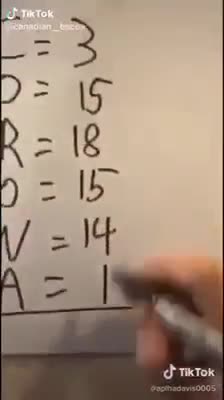 TikTok
= 3
O = 15
R = 18
O = 15
N = 14
A = 1
TikTok
@aplhadavis0005